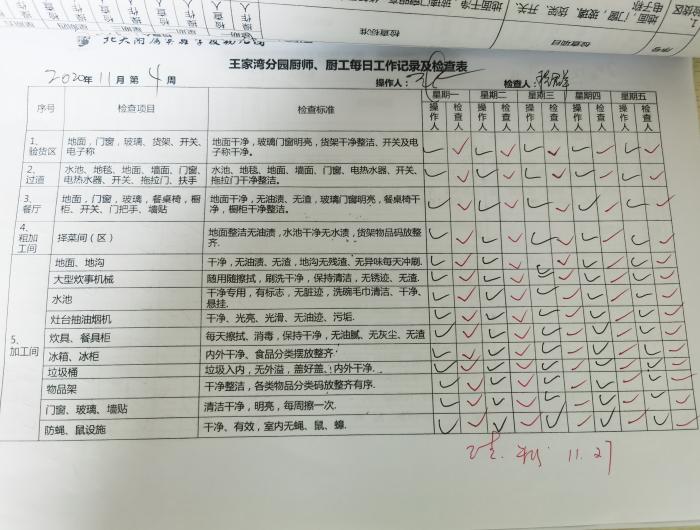 检查项目
检查标准
序号
王家湾分园厨师、厨工每日工作记录及检查表
2020年 11月 第 4 周 操作人: 检查人:
序号 检查项目 检查标准 星期一 星期二 星期三 星期四 星期五
操作人 检查人 操作人 检查人 操作人 检查人 操作人 检查人 操作人 检查人
1、验货区 地面,门窗,玻璃、货架、开关、电子称 地面干净,玻璃门窗明亮,货架干净整洁、开关及电子称干净。
2、过道 水池、地毯、地面、墙面、门窗、电热水器、开关、拖拉门、扶手 水池、地毯、地面、墙面、门窗、电热水器、开关、拖拉门干净整洁。
3、餐厅 地面,门窗,玻璃,餐桌椅,橱柜、开关、门把手、墙贴 地面干净,无油渍、无渣,玻璃门窗明亮,餐桌椅干净,橱柜干净整洁。
4、粗加工间 择菜间(区) 地面整洁无油渍,水池干净无水渍,货架物品码放整齐.
5、加工间 地面、地沟 干净,无油渍、无渣,地沟无残渣、无异味每天冲刷.
大型炊事机械 随用随擦拭,刷洗干净,保持清洁,无锈迹、无渣.
水池 干净专用,有标志,无脏迹,洗碗毛巾清洁、干净、悬挂.
灶台抽油烟机 干净、光亮、光滑、无油迹、污垢.
炊具、餐具柜 每天擦拭、消毒,保持干净,无油腻、无灰尘、无渣
冰箱、冰柜 内外干净、食品分类摆放整齐
垃圾桶 垃圾入内,无外溢,盖好盖、内外干净.
物品架 干净整洁,各类物品分类码放整齐有序.
门窗、玻璃、墙贴 清洁干净,明亮,每周擦一次.
防蝇、鼠设施 干净、有效,室内无蝇、鼠、蟑.
11.27